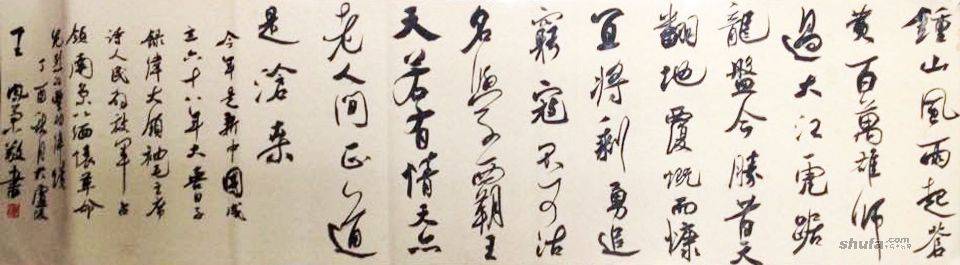 鍾山風雨起蒼
黄百萬雄师
過大江虎踞
龍盤今勝昔天
翻地覆慨而慷
宜將剩勇追
窮寇不可沽
名學霸王
天若有情天亦
老人間正道
是滄桑
今年是新中國成
立六十八年大喜日子
録偉大領袖毛主席
诗人民解放軍占
領南京以緬懷革命
先烈豐功偉績
丁酉秋月
王鳳 敬書
shufa.com